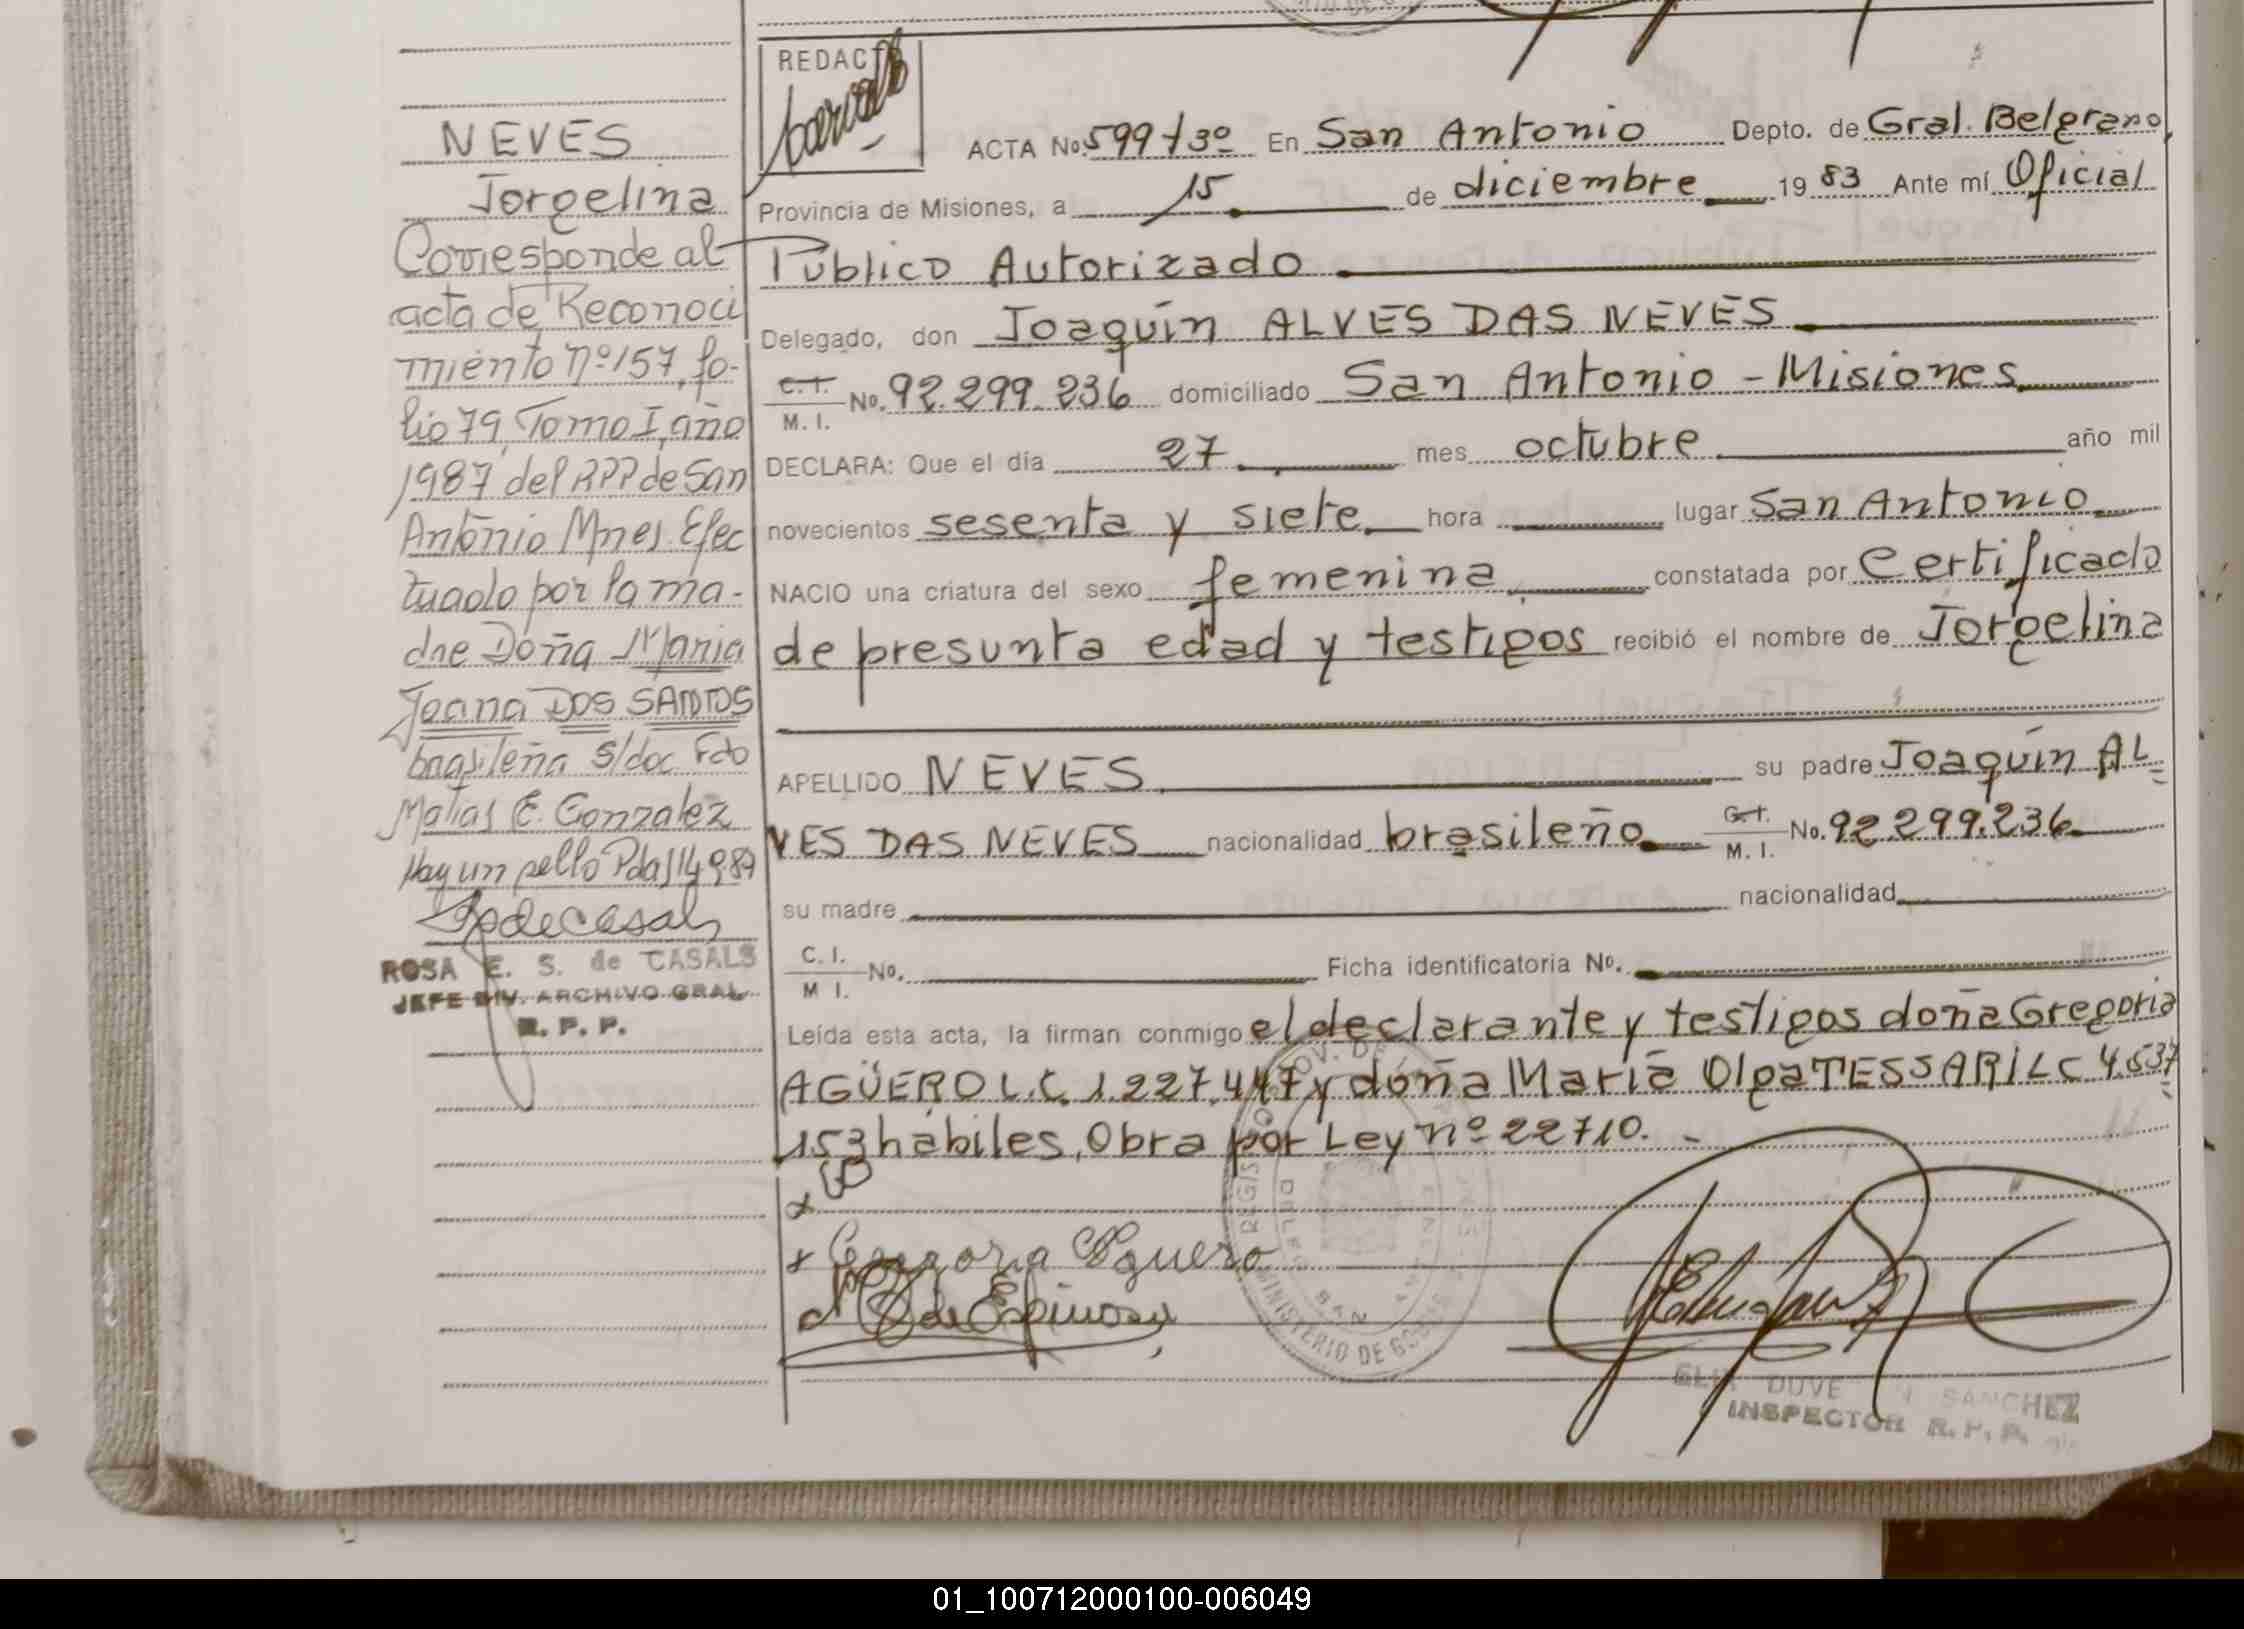 NEVES
Jorgelina
Corresponde al
acta de Reconoci
miento nº 157, fo-
lio 79, Tomo I, año
1987 del RPP de San
Antonio Mnes. Efec
tuado por la ma-
dre Doña Maria
Joana DOS SANTOS
brasileña s/doc Fdo
Matias E. Gonzalez
Hay un sello Pdas
ROSA E. S. de CASALS
JEFE DIV. ARCHIVO GRAL.
R. P. P.
REDACTÓ
ACTA No. 599 t 3º En San Antonio Depto. de Gral. Belgrano,
Provincia de Misiones, a 15 de diciembre 19 83 Ante mí Oficial
Publico Autorizado
Delegado, don Joaquín ALVES DAS NEVES
C. I.
M. I. No. 92.299.236 domiciliado San Antonio - Misiones
DECLARA: Que el día 27 mes octubre año mil
novecientos sesenta y siete hora lugar San Antonio
NACIO una criatura del sexo femenina constatada por Certificado
de presunta edad y testigos recibió el nombre de Jorgelina
APELLIDO NEVES su padre Joaquín AL=
VES DAS NEVES nacionalidad brasileño C. I. M. I. No. 92.299.236
su madre nacionalidad
C. I.
M I. No. Ficha identificatoria No.
Leída esta acta, la firman conmigo el declarante y testigos doña Gregoria
AGÜERO L.C. 1.227.447 y doña María Olga TESSARI LC 4.537=
153 habiles, Obra por Ley nº 22710. -
Gregoria Aguero
de Espinosa
MINISTERIO DE
SANCHEZ
INSPECTOR R. P. P.
01_100712000100-006049